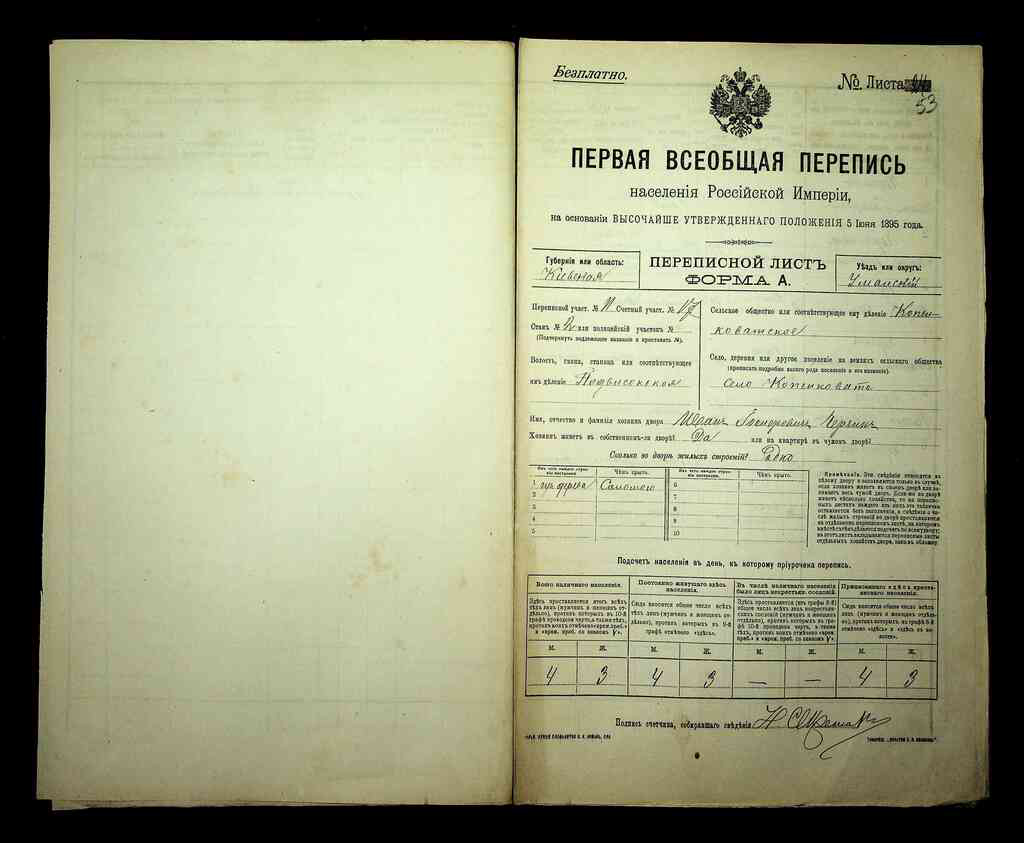 Безплатно.
№ Листа
53
ПЕРВАЯ ВСЕОБЩАЯ ПЕРЕПИСЬ
населенія Россійской Имперіи,
на основаніи ВЫСОЧАЙШЕ УТВЕРЖДЕННАГО ПОЛОЖЕНІЯ 5 Іюня 1895 года.
Губернія или область:
Кіевская
ПЕРЕПИСНОЙ ЛИСТЪ
ФОРМА А.
Уѣздъ или округъ:
Уманскій
Переписной участ. № 11 Счетный участ. № 17
Станъ № 2 или полицейскій участокъ №
(Подчеркнуть подлежащее названіе и проставить №).
Волость, гмина, станица или соотвѣтствующее
имъ дѣленіе Подвысоцкая
Сельское общество или соотвѣтствующее ему дѣленіе Копен-
коватское
Село, деревня или другое поселеніе на земляхъ сельскаго общества
(прописать подробно какого рода поселеніе и его названіе).
Село Копенковато
Имя, отчество и фамилія хозяина двора
Хозяинъ живетъ въ собственномъ-ли дворѣ? Да или на квартирѣ въ чужомъ дворѣ?
Сколько во дворѣ жилыхъ строеній? Одно
Изъ чего каждое строеніе построено. Чѣмъ крыто. Изъ чего каждое строеніе построено. Чѣмъ крыто.
1 изъ дерева Соломою 6
2 7
3 8
4 9
5 10
Примѣчаніе. Эти свѣдѣнія относятся къ
цѣлому двору и заполняются только въ случаѣ,
если хозяинъ живетъ въ своемъ дворѣ или за-
нимаетъ весь чужой дворъ. Если-же на дворѣ
живетъ нѣсколько хозяйствъ, то на перепис-
ныхъ листахъ каждаго изъ нихъ эта табличка
оставляется безъ заполненія, а свѣдѣнія о чи-
слѣ жилыхъ строеній во дворѣ проставляются
на отдѣльномъ переписномъ листѣ, на которомъ
Подсчетъ населенія въ день, къ которому пріурочена перепись.
Всего наличнаго населенія. Постоянно живущаго здѣсь населенія. Въ числѣ наличнаго населенія было лицъ некрестьян. сословій. Приписаннаго здѣсь крестьянскаго населенія.
Здѣсь проставляется итогъ всѣхъ
тѣхъ лицъ (мужчинъ и женщинъ от-
дѣльно), противъ которыхъ въ 10-й
графѣ проведена черта, а также тѣхъ,
противъ коихъ отмѣчено «врем. преб.»
и «врем. преб. со знакомъ V».
Сюда вносится общее число всѣхъ
тѣхъ лицъ (мужчинъ и женщинъ отдѣль-
но), противъ которыхъ въ 9-й
графѣ отмѣчено «здѣсь».
Здѣсь проставляется (изъ графы 3-й)
общее число всѣхъ лицъ некресть-
янскихъ сословій (мужчинъ и женщинъ
отдѣльно), противъ которыхъ въ гра-
фѣ 10 проведена черта, а также
тѣхъ, противъ коихъ отмѣчено «врем.
преб.» и «врем. преб. со знакомъ V».
Сюда вносится общее число всѣхъ
тѣхъ лицъ (мужчинъ и женщинъ отдѣль-
но), противъ которыхъ въ графѣ 8-й
отмѣчено «здѣсь» и «здѣсь въ во-
лости».
М. Ж. М. Ж. М. Ж. М. Ж.
4 3 4 3 — — 4 3
Подпись счетчика, собиравшаго свѣдѣнія